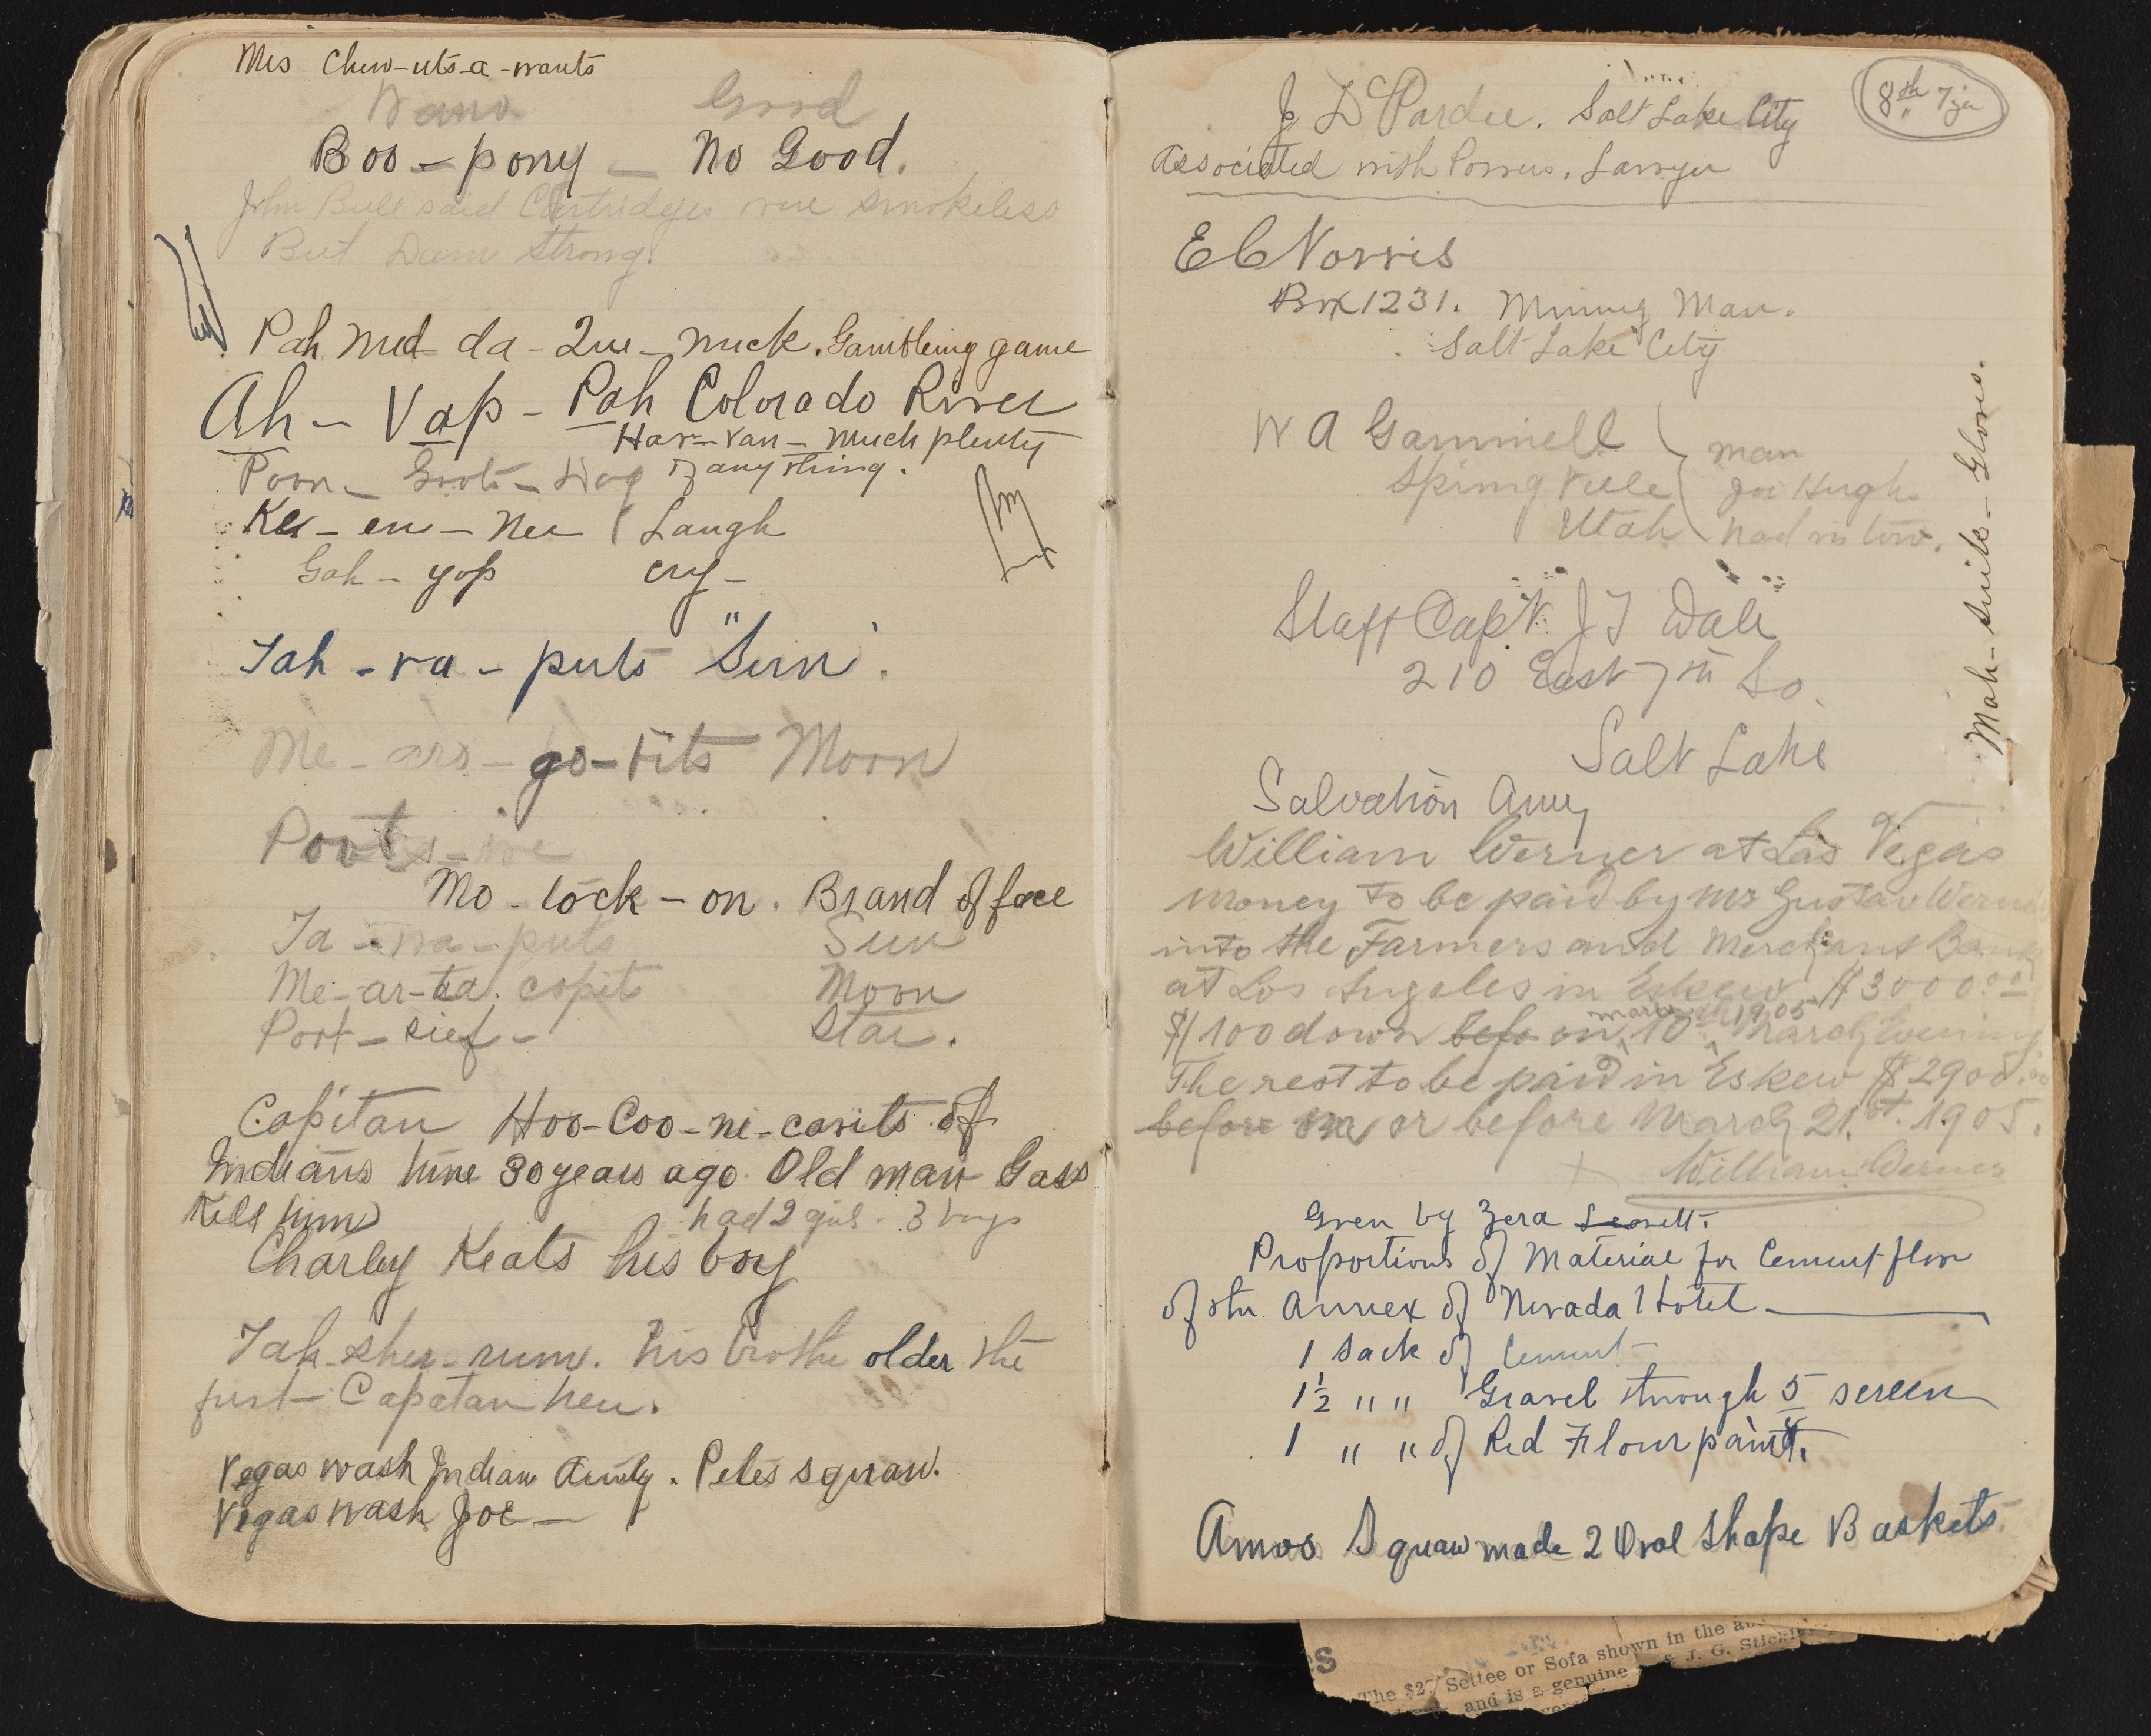 Mrs Chuw-uts-a-wants
Wano. Good
Boo-pony — No Good.
John Bull said Cartridges were smokeless
But Dam Strong.
Pah Med da-Que-nuck. Gambling game
Ah-Vap-Pah Colorado River
Har-van- much plenty
of any thing.
Poon- Goots- Dog
Ke-en-Nee ( Laugh
Gah-yop cry-
Tah-va-puts "Sun".
Me-aro-go-tits Moon
Poot
Mo-tock-on. Brand of face
Ta-wa-puts Sun
Me-ar-ta. copits Moon
Port-sief- Star.
Capitan Hoo-Coo-ni-carits of
Indians here 30 years ago. Old man Gass
Kill him had 2 girls - 3 boys
Charley Keats his boy
Tah-sheu-num. his brothe older the
furst Capatan heu.
Vegas wash Indian Aunty. Petes squaw.
Vegas wash Joe —
8th
J D Pardee. Salt Lake City
Associated with Powers. Lawyer
E C Norris
Box 1231. Mining Man.
Salt Lake City
W A Gammell man
Springville Joe Hugh
Utah had in tow.
Mah-suits-Gloves.
Staff Capt. J T Dale
210 East 7th So.
Salt Lake
Salvation Army
William Werner at Las Vegas
money to be paid by Mr Gustav Werner
into the Farmers and Merchant Bank
at Los Angeles in Eskew $3000.00
March 1905
$100 down befo on 10th March Evening
The rest to be paid in Eskew $2900.00
before on or before March 21.st. 1905.
x William Werner
Given by Zera Leavett.
Proportions of Material for Cement floor
of stn. Annex of Nevada Hotel
1 Sack of Cement
1½ " " Gravel through 5 screen
1 " " of Red Flour paint.
Amos Squaw made 2 Oval Shape Baskets
s
The $27 Settee or Sofa shown in the
and is a genuine J. G. Stick